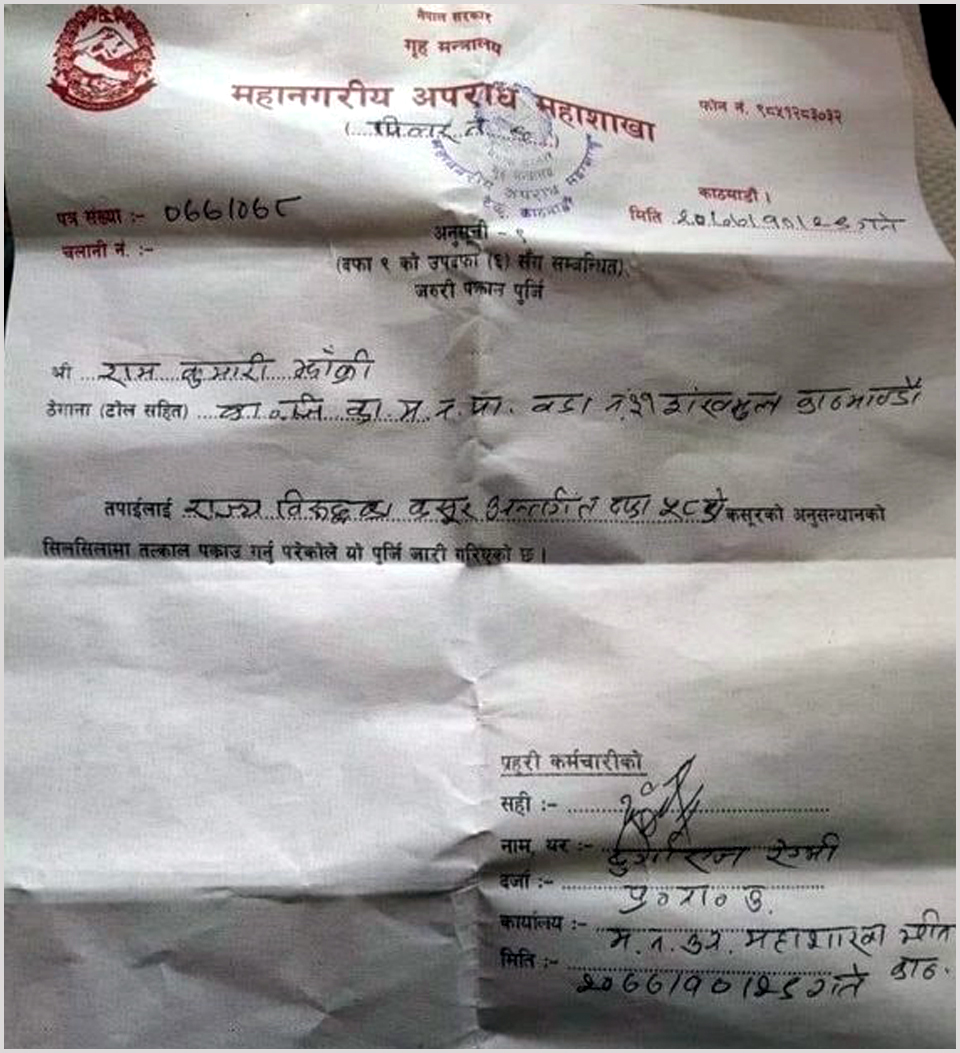 नेपाल सरकार
गृह मन्त्रालय
महानगरीय अपराध महाशाखा
फोन नं. ९८५१२८३०३२
महानगरीय अपराध महाशाखा
टेकु, काठमाडौं
काठमाडौं ।
पत्र संख्या :- ०७७/०७८
मिति २०७७/१०/२९ गते
चलानी नं. :-
अनुसूची - ९
(दफा ९ को उपदफा (६) सँग सम्बन्धित)
जरुरी पक्राउ पुर्जि
श्री राम कुमारी झाँक्री
ठेगाना (टोल सहित) का.जि का.म.न.पा. वडा नं ३१ शंखमुल काठमाण्डौ
तपाईलाई राज्य विरूद्धका कसूर अन्तर्गत दफा ५८ को कसूरको अनुसन्धानको
सिलसिलामा तत्काल पक्राउ गर्नु परेकोले यो पुर्जि जारी गरिएको छ ।
प्रहरी कर्मचारीको
सही :-
नाम, थर :- दुर्गाराज रेग्मी
दर्जा :- प्र०ना०उ.
कार्यालय :- म.न.अप. महाशाखा काठ.
मिति :- २०७७/१०/२९ गते